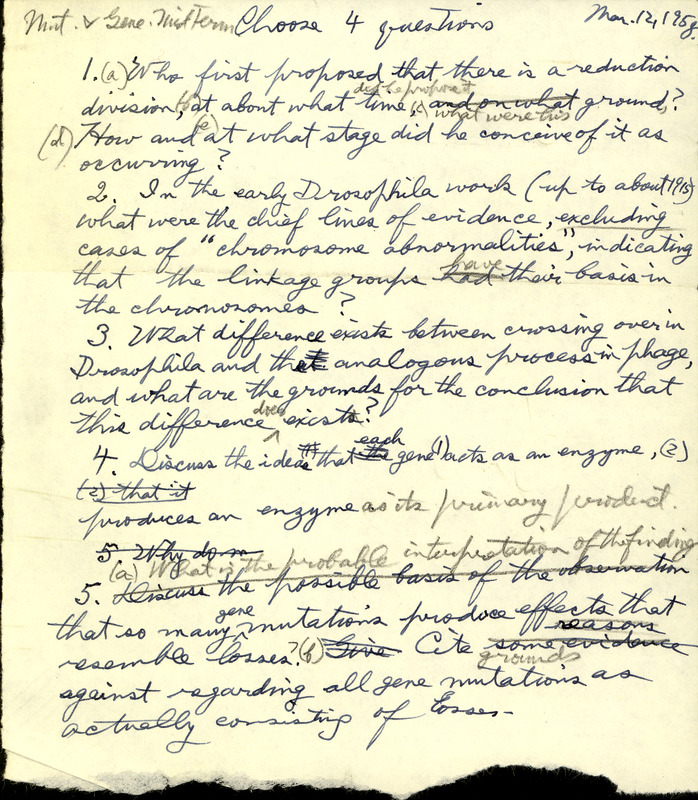 Mut. & Gene. Mid Term Choose 4 questions Mar. 12, 1958.
1. (a) Who first proposed that there is a reduction
did he propose it
division, (b) at about what time, (c) and on what ground,?
what were his
(d) How and (e) at what stage did he conceive of it as
occurring?
2. In the early Drosophila work (up to about 1915)
what were the chief lines of evidence, excluding
cases of "chromosome abnormalities", indicating
have
that the linkage groups had their basis in
the chromosomes?
3. What difference exists between crossing over in
Drosophila and the analogous process in phage,
and what are the grounds for the conclusion that
does
this difference exists?
each
4. Discuss the ideas that the gene (1) acts as an enzyme, (2)
(2) that it
produces an enzyme as its primary product.
5 Why do m
(a) What is the probable interpretation of the finding
5. Discuss the possible basis of the observation
gene
that so many mutations produce effects that
reasons
resemble losses.? (b) Give Cite some evidence
grounds
against regarding all gene mutations as
actually consisting of losses.